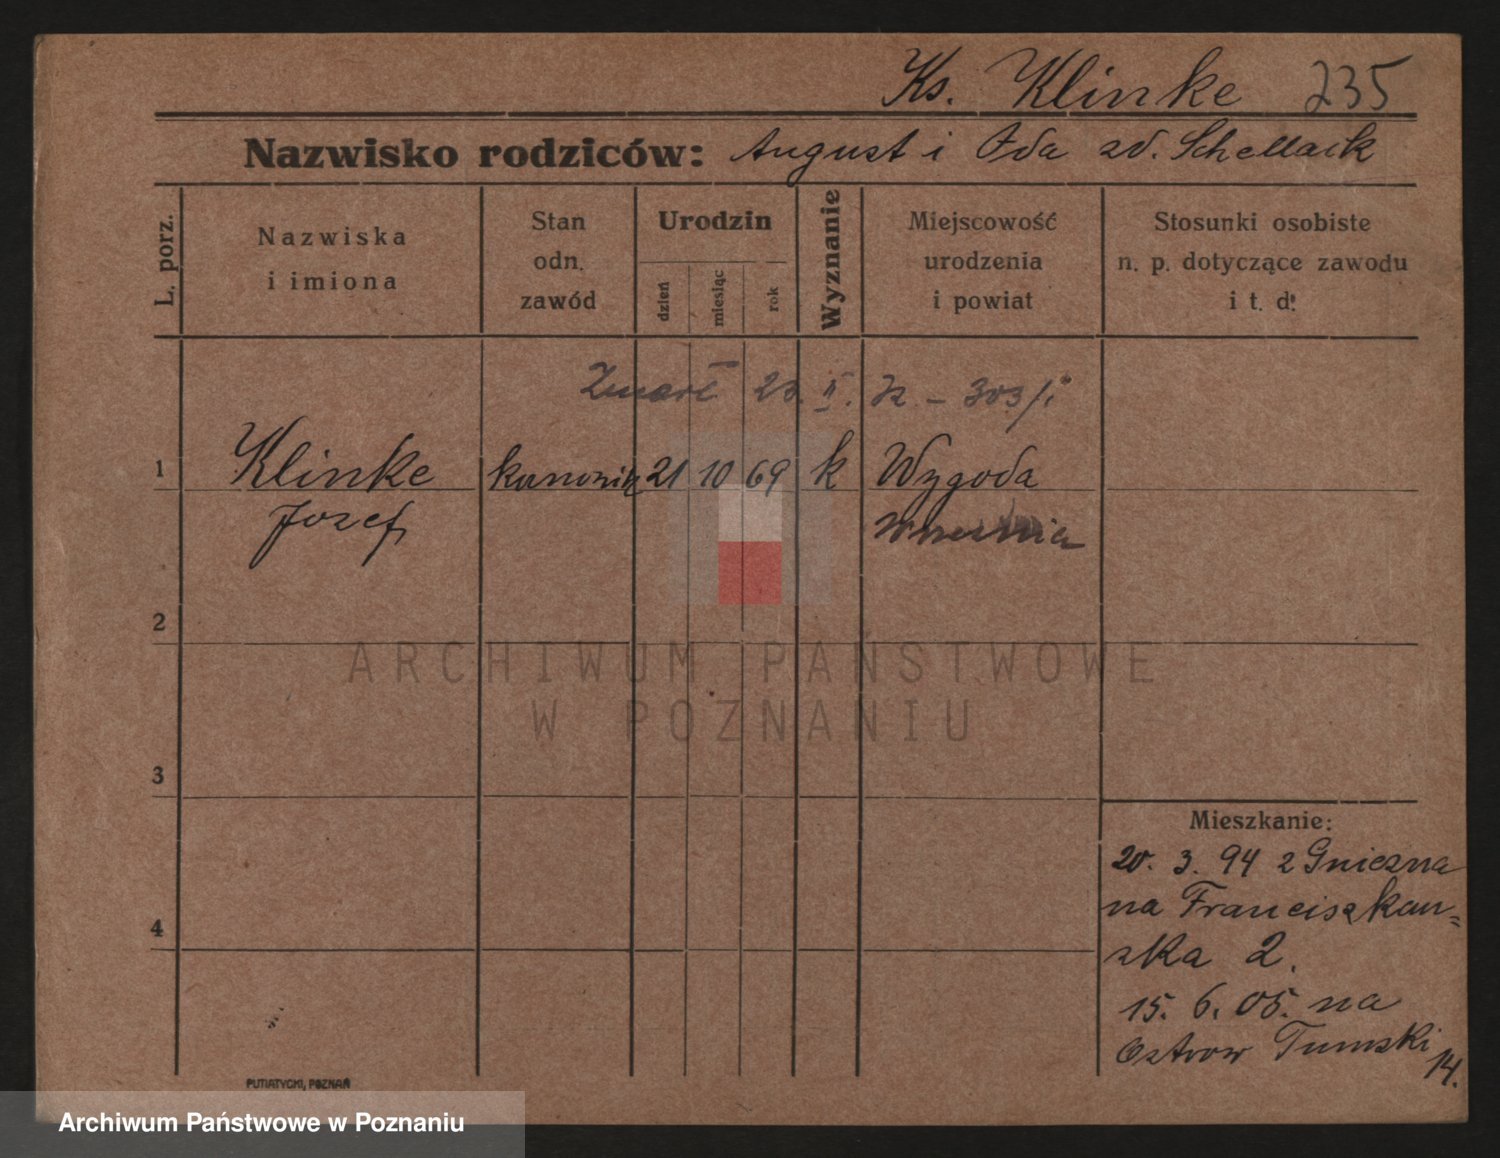 Ks. Klinke 235
Nazwisko rodziców: August i Oda zd. Schellack
L. porz.
Nazwiska
i imiona
Stan
odn.
zawód
Urodzin
dzień
miesiąc
rok
Wyznanie
Miejscowość
urodzenia
i powiat
Stosunki osobiste
n. p. dotyczące zawodu
i t. d.
Zmarł 23. II. 32 - 303/i
1 Klinke kanonik 21 10 69 k Wygoda
Józef Września
2
ARCHIWUM PAŃSTWOWE
W POZNANIU
3
Mieszkanie:
20. 3. 94 z Gniezna
na Franciszkań=
4
ska 2.
15. 6. 05. na
Ostrow Tumski
14.
PUTIATYCKI, POZNAŃ
Archiwum Państwowe w Poznaniu